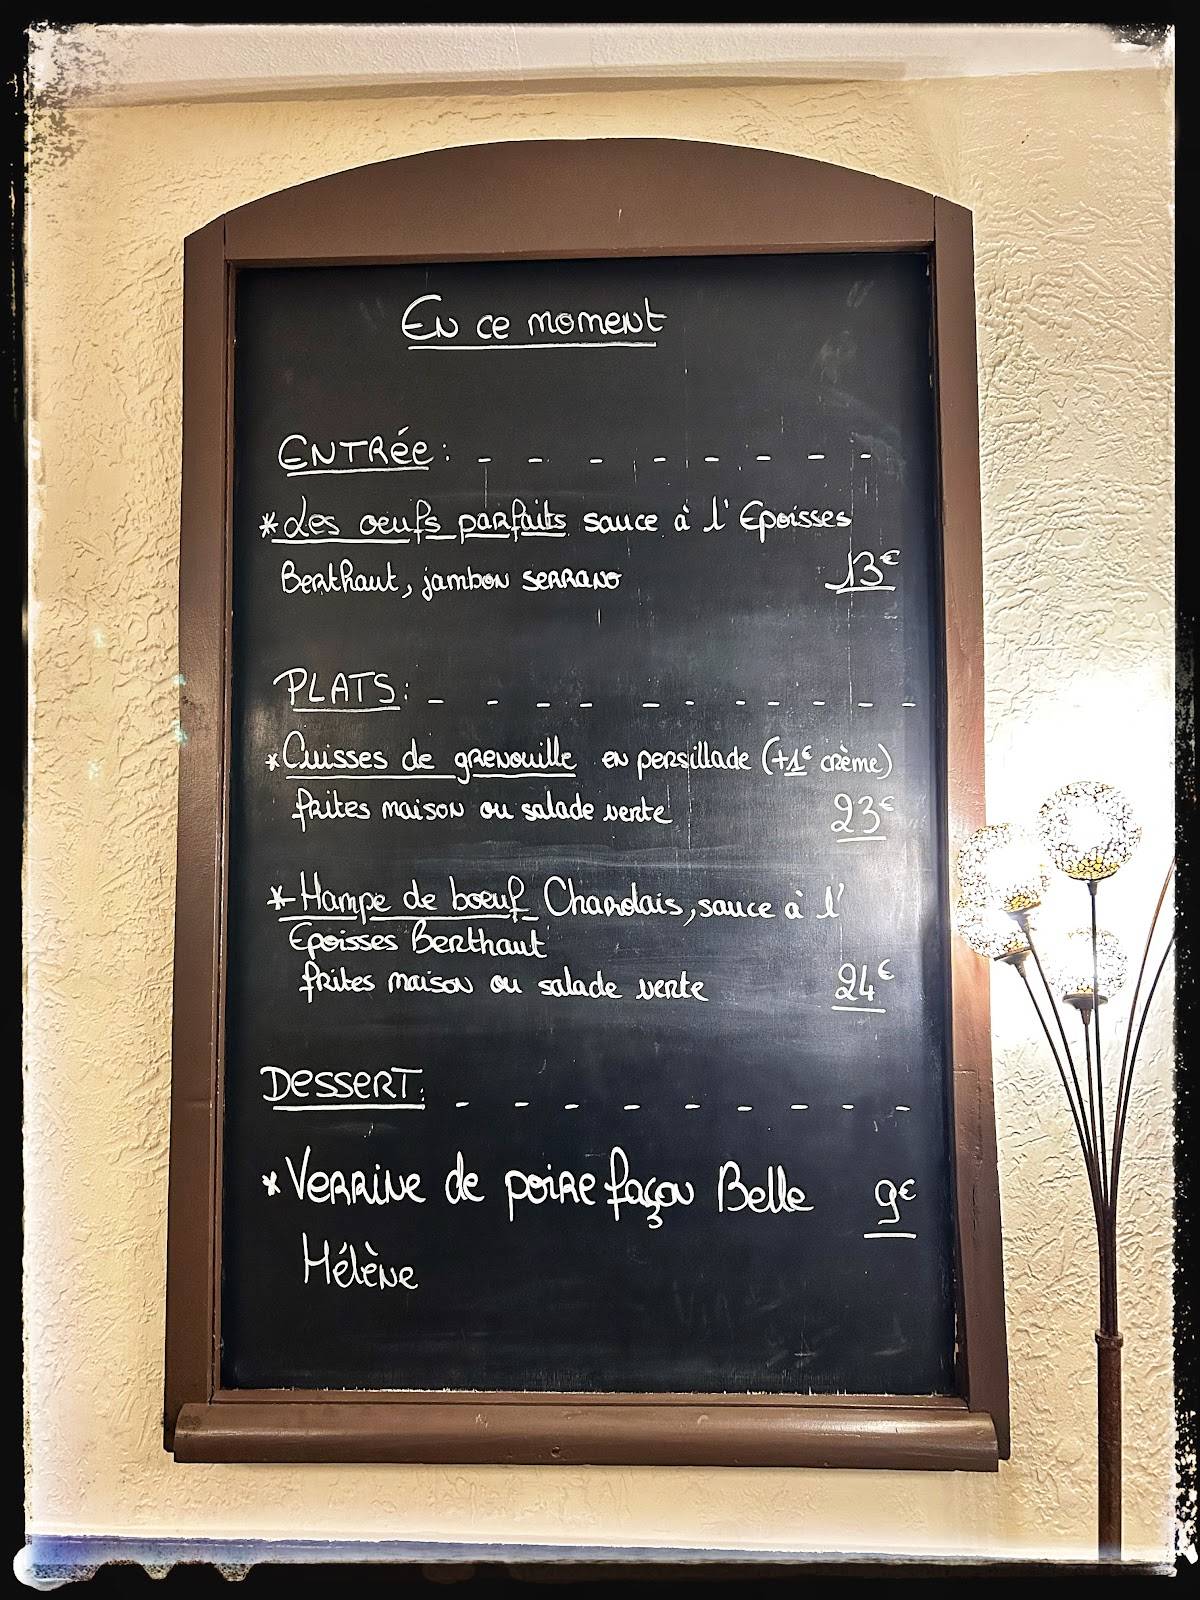 En ce moment
ENTRÉE : - - - - - - - -
* Les oeufs parfaits sauce à l'Epoisses
Berthaut, jambon serrano 13€
PLATS : - - - - - - - - - -
* Cuisses de grenouille en persillade (+1€ crème)
frites maison ou salade verte 23€
* Hampe de boeuf Charolais, sauce à l'
Epoisses Berthaut
frites maison ou salade verte 24€
DESSERT : - - - - - - - - -
* Verrine de poire façon Belle 9€
Hélène